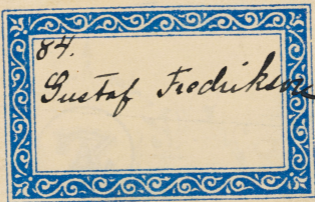 84.
Gustaf Fredrikson